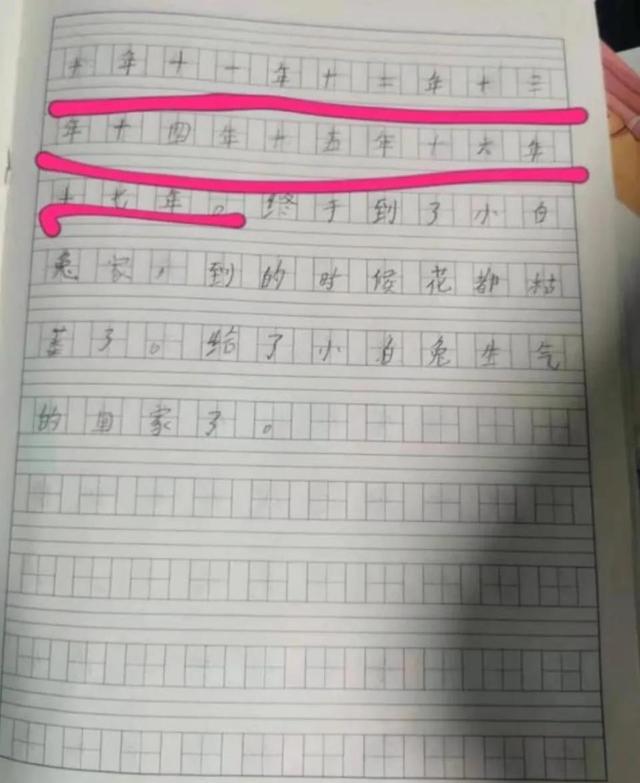 十年十一年十二年十三
年十四年十五年十六年
十七年。终于到了小白
兔家，到的时候花都枯
萎了。给了小白兔生气
的回家了。